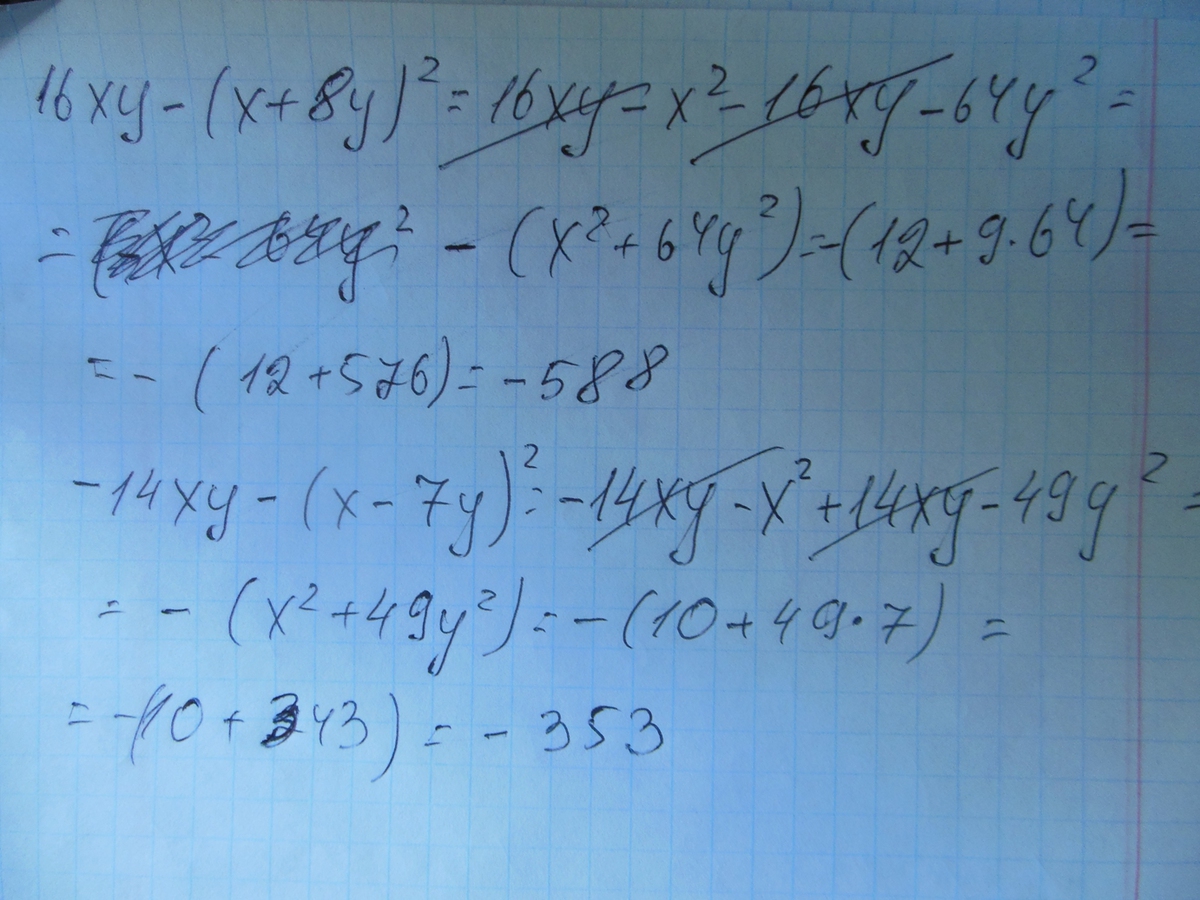 16xy - (x + 8y)² = 16xy - x² - 16xy - 64y² =
= - (x² + 64y²) = -(12 + 9·64) =
= - (12 + 576) = - 588
-14xy - (x - 7y)² = -14xy - x² + 14xy - 49y² =
= - (x² + 49y²) = - (10 + 49·7) =
= -(10 + 343) = - 353